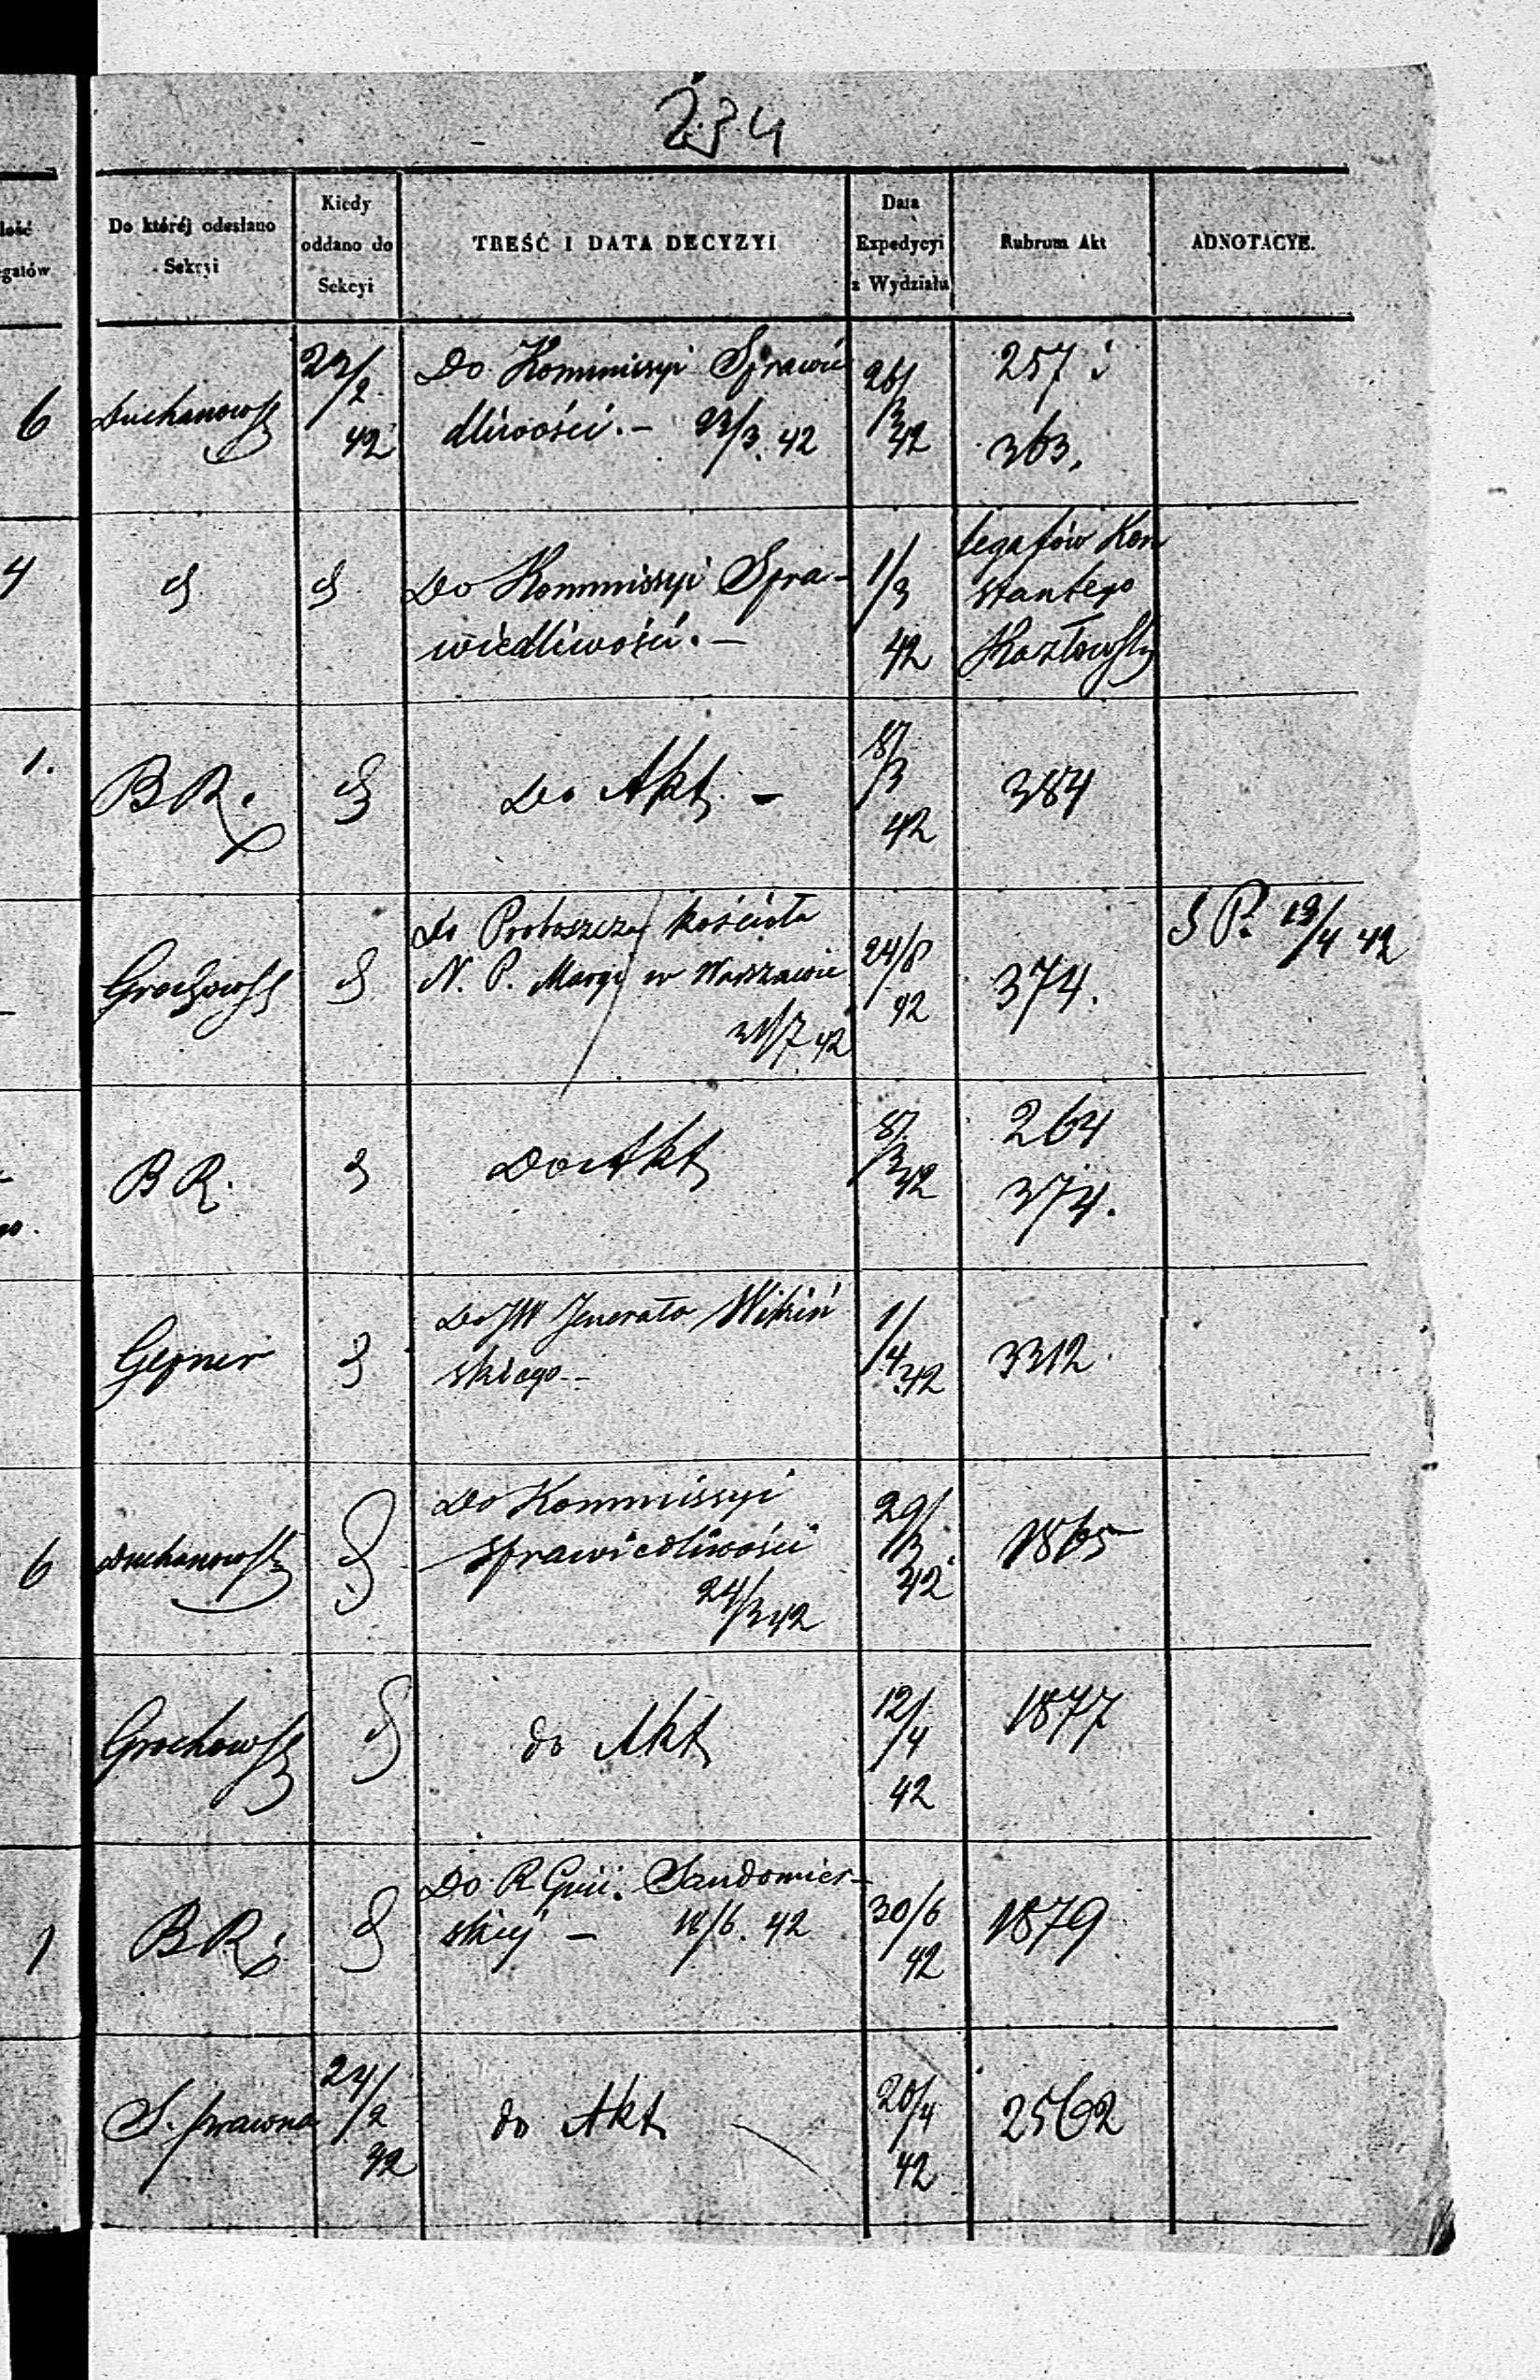 234
lość
egatów
Do któréj odesłano
Sekcyi
Kiedy
oddano do
Sekcyi
TREŚĆ I DATA DECYZYI
Data
Expedycyi
z Wydziału
Rubrum Akt
ADNOTACYE.
6
Duchanows
22/2
42
Do Kommissyi Sprawie
dliwości. — 23/3. 42
26/3
42
257 i
363.
4
Do Kommissyi Spra-
wiedliwości. —
1/3
42
legatów Kon
stantego
Kozłows
1.
B R.
Do Akt. —
8/3
42
384
Grochows
Do Proboszcza kościoła
N. P. Maryi w Warszawie
31/7 42
24/8
42
374.
S P. 13/4 42
B R.
Do Akt
8/3
42
264
374.
Gepner
Do JW Jenerała
skiego —
1/4
42
3312
6
Duchanows
Do Kommissyi
Sprawiedliwości
24/3 42
29/3
42
1865
Grochows
do Akt
12/4
42
1877
1
B R.
Do R Gnii. Sandomier-
skiej — 18/6. 42
30/6
42
1879
S. prawna
24/2
42
do Akt
20/4
42
2562